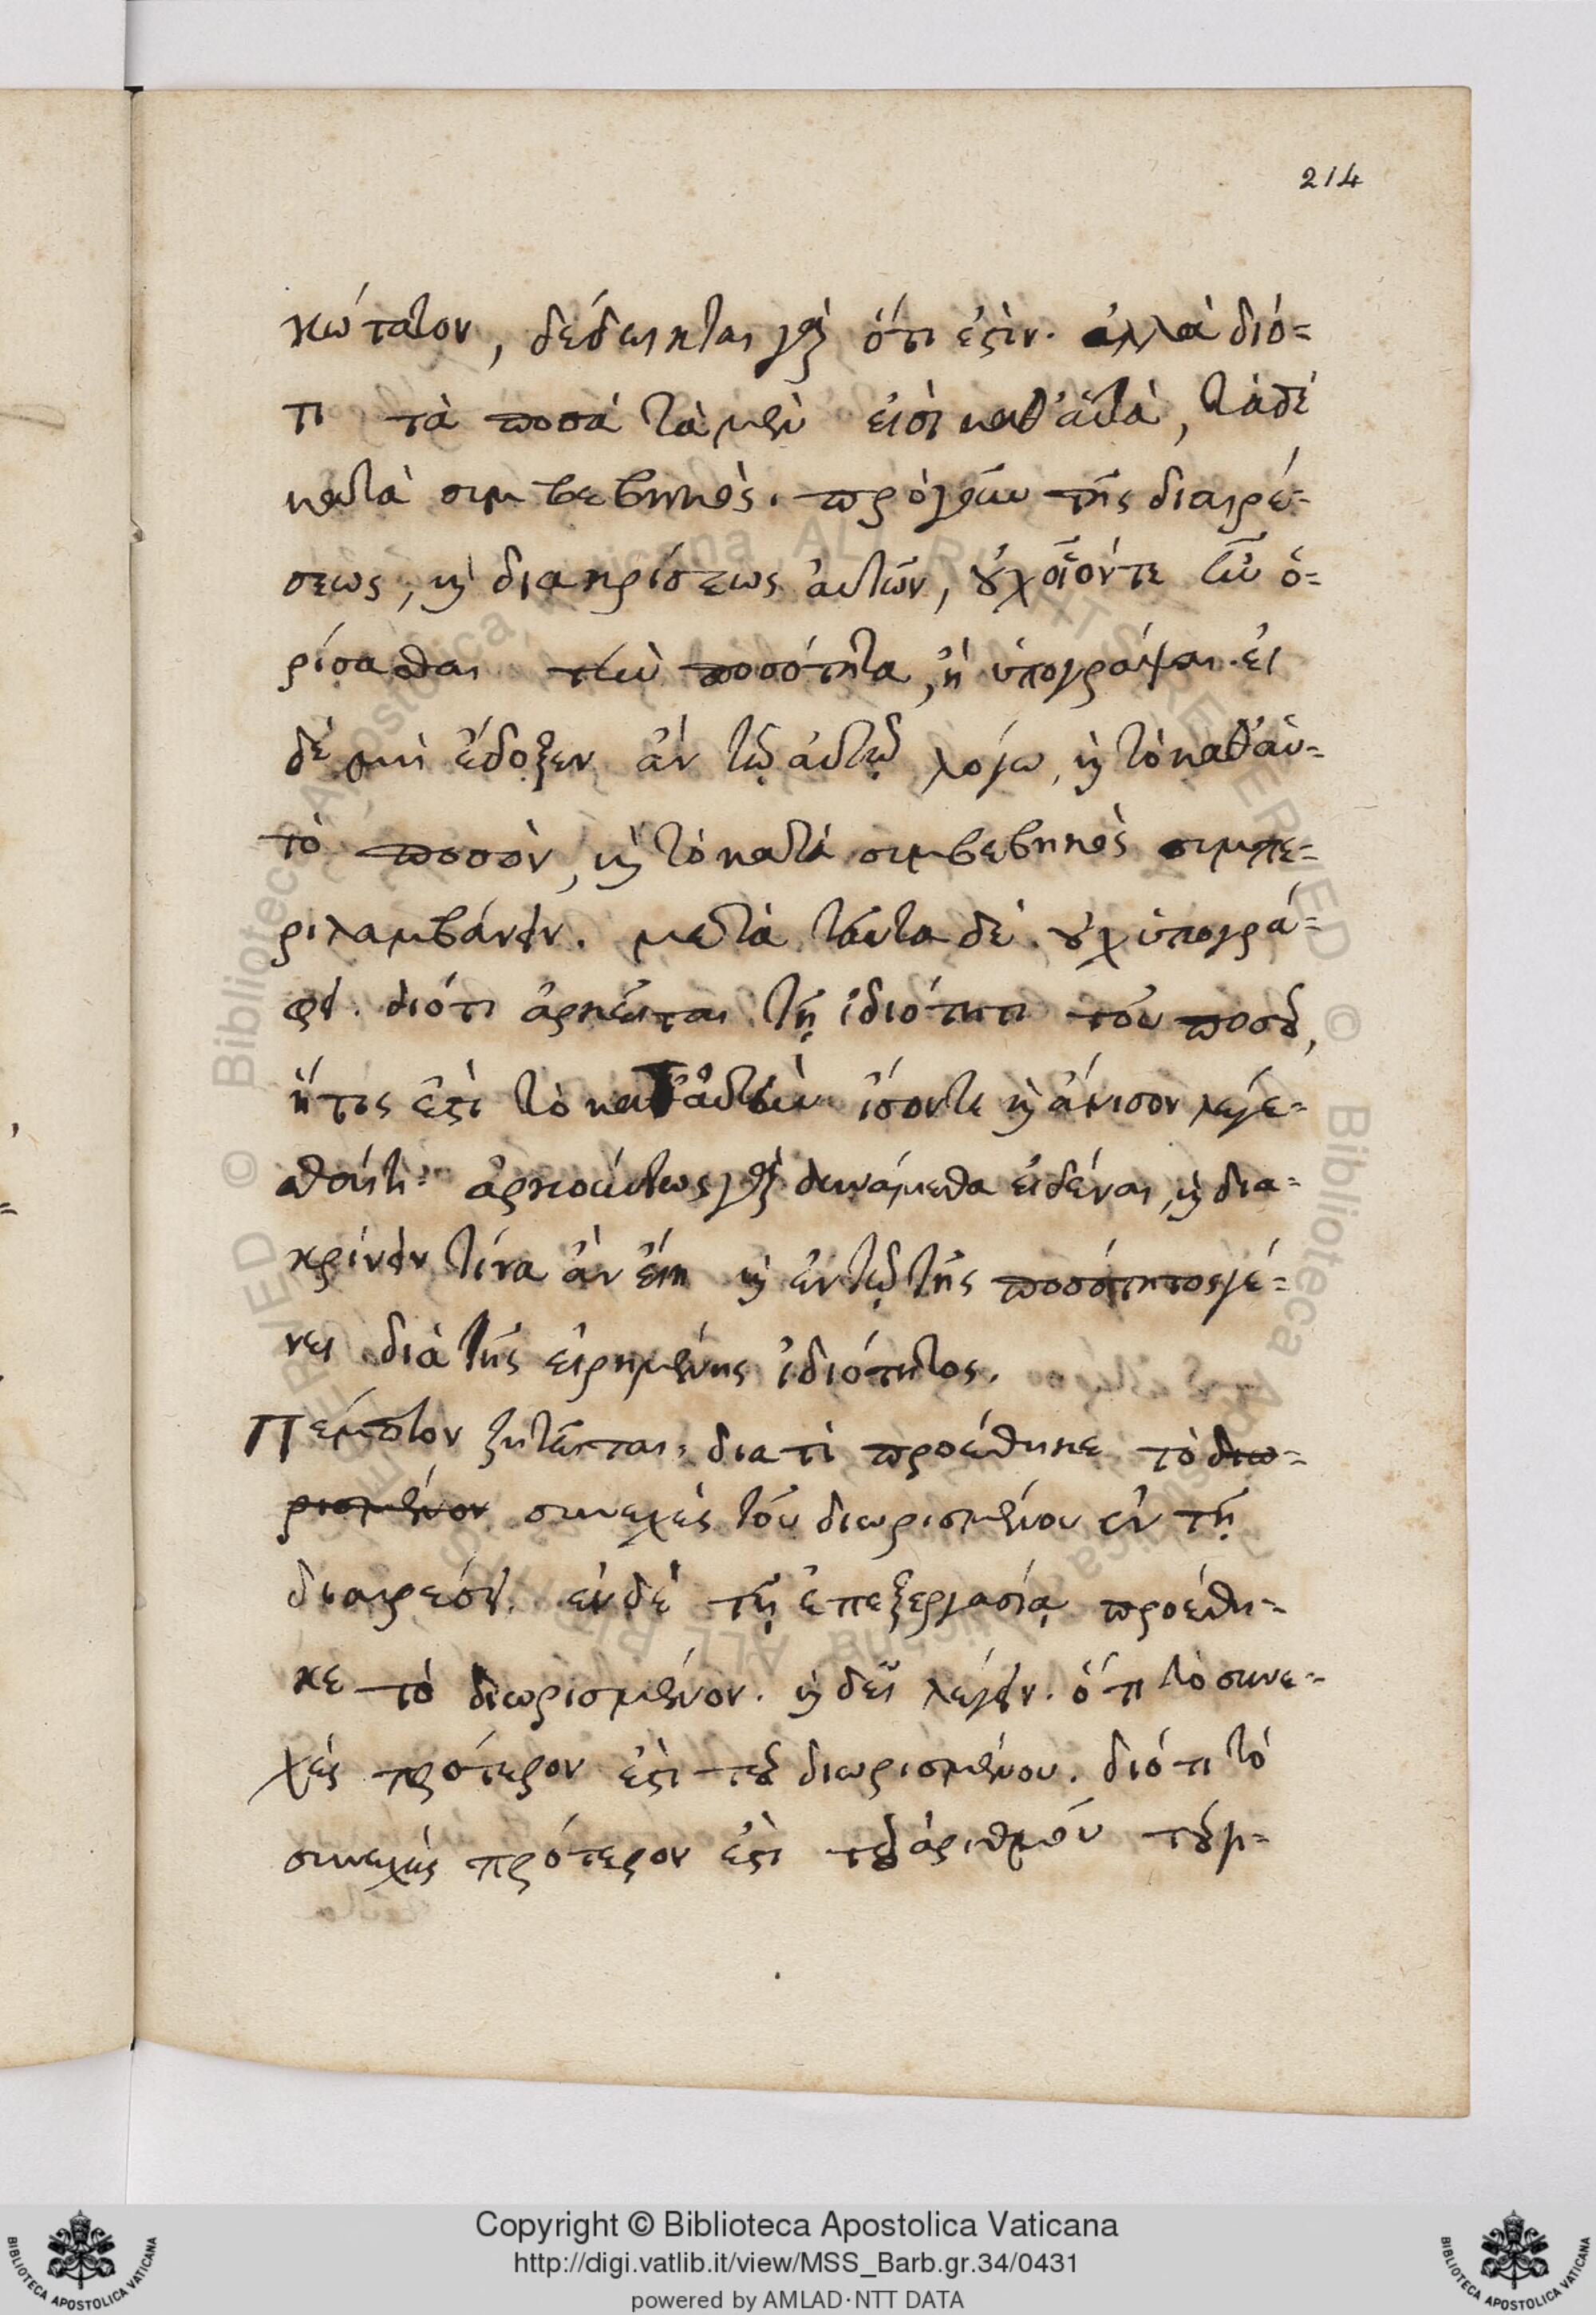 214
κώτατον, δέδεικται γὰρ ὅτι ἐστίν. ἀλλὰ διό=
τι τὰ ποσὰ τὰ μὲν εἰσὶ καθ' αὑτὰ, τὰ δὲ
κατὰ συμβεβηκὸς. πρὸ γοῦν τῆς διαιρέ=
σεως, καὶ διακρίσεως αὐτῶν, οὐχ οἷόντε ἦν ὁ=
ρίσασθαι τὴν ποσότητα, ἢ ὑπογράψαι. εἰ
δὲ μὴ ἔδοξεν ἂν τῷ αὐτῷ λόγω, καὶ τὸ καθ' αὑ=
τὸ ποσὸν, καὶ τὸ κατὰ συμβεβηκὸς συμπε=
ριλαμβάνειν. μετὰ ταῦτα δὲ οὐχ ὑπογρά=
φει. διότι ἀρκεῖται τῇ ἰδιότητι τοῦ ποσοῦ,
ἥτις ἐστὶ τὸ κατ' αὐτὴν ἴσον τε καὶ ἄνισον λέγε=
σθαί τι. ἀρκούντως γὰρ δυνάμεθα εἰδέναι, καὶ δια=
κρίνειν τίνα ἂν εἴη καὶ ἐν τῷ τῆς ποσότητος γέ=
νει διὰ τῆς εἰρημένης ἰδιότητος.
Πέμπτον ζητεῖται, διατὶ προέθηκε τὸ διω=
ρισμένον συνεχὲς τοῦ διωρισμένου ἐν τῇ
διαιρέσει. ἐν δὲ τῇ ἐπεξεργασίᾳ προέθη=
κε τὸ διωρισμένον. καὶ δεῖ λέγειν. ὅτι τὸ συνε=
χὲς πρότερον ἐστὶ τοῦ διωρισμένου. διότι τὸ
συνεχὲς πρότερον ἐστὶ τοῦ ἀριθμοῦ τοῦ μ=
Copyright © Biblioteca Apostolica Vaticana
http://digi.vatlib.it/view/MSS_Barb.gr.34/0431
powered by AMLAD·NTT DATA